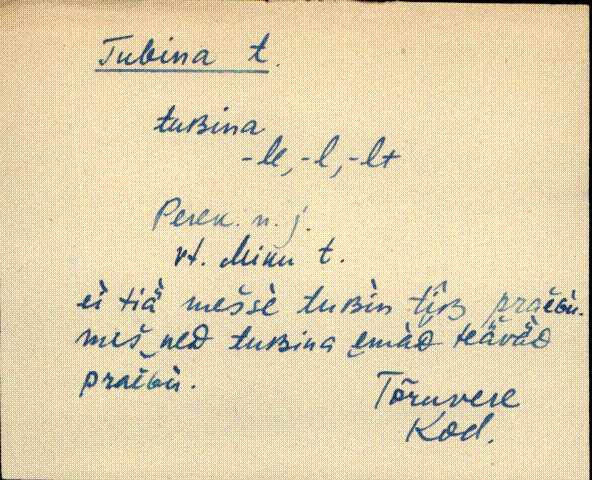 Tubina t.
tuʙina
-le, -l, -lt
Peren. n. j.
vt. Miku t.
ei tiä mešse tuʙin tiʙ praeˈɢu.
meš ned tuʙina emäD teäväD
praeˈɢu.
Tõruvere
Kod.